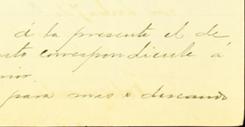 á la presente el de
correspondiente á
para mas o deseando